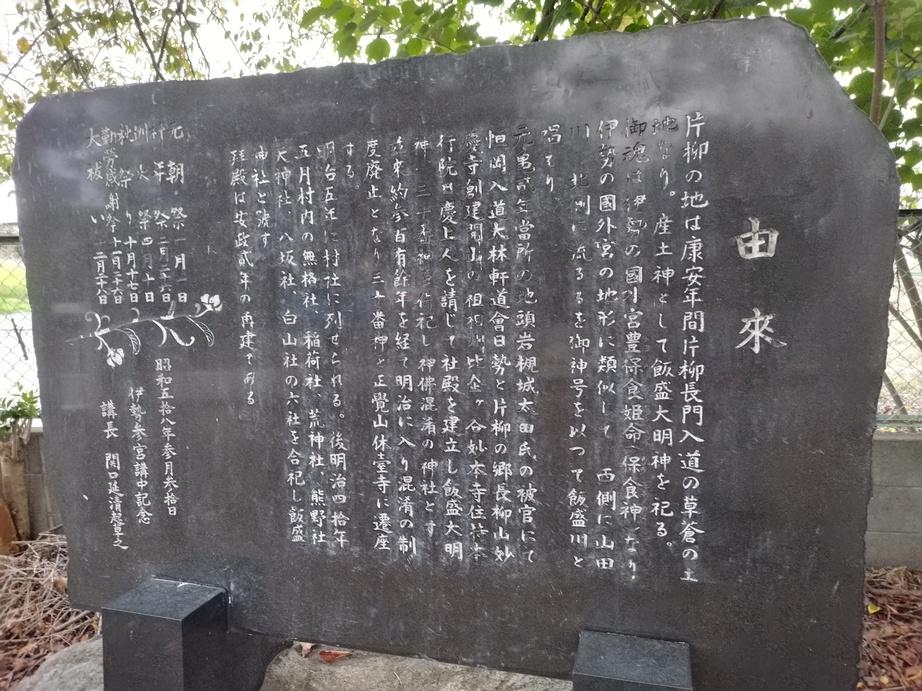 由來
片柳の地は康安年間片柳長門入道の草蒼の土
地なり。産土神として飯盛大明神を祀る。
御魂は伊勢の國外宮豊保食姫命保食神なり.
伊勢の國外宮の地形に類似して西側に山田
川北側に流るるを御神号を以つて飯盛川と
唱てり
元男成年當所の地頭岩槻城太田氏の被官にて
恒岡入道大林軒道會日勢と片柳の郷長柳山妙
慶寺創建開山の祖相州比企ヶ谷妙本寺住持本
行院日慶上人を請じて社殿を建立し飯盛大明
神、三十番神を祀し神佛混淆の神社とす
爾來約参百有餘年を経て明治に入り混淆の制
度廃止となり三十番神は正覺山休臺寺に遷座
する。
明治五年に村社に列せられる。後明治四拾年
五月村内の無格社、稲荷社、荒神社、熊野社
天神社、八坂社、白山社の六社を合祀し飯盛
神社と號す
拜殿は安政貳年の再建である
元朝祭一月一日
祈年祭二月二十六日
祭四月十日
社祭り十月十七日
勤労感謝祭十一月二十六日
大祓い十二月二十八日
昭和五拾八年参月参拾日
伊勢参宮講中記念
講長 関口延清起草之